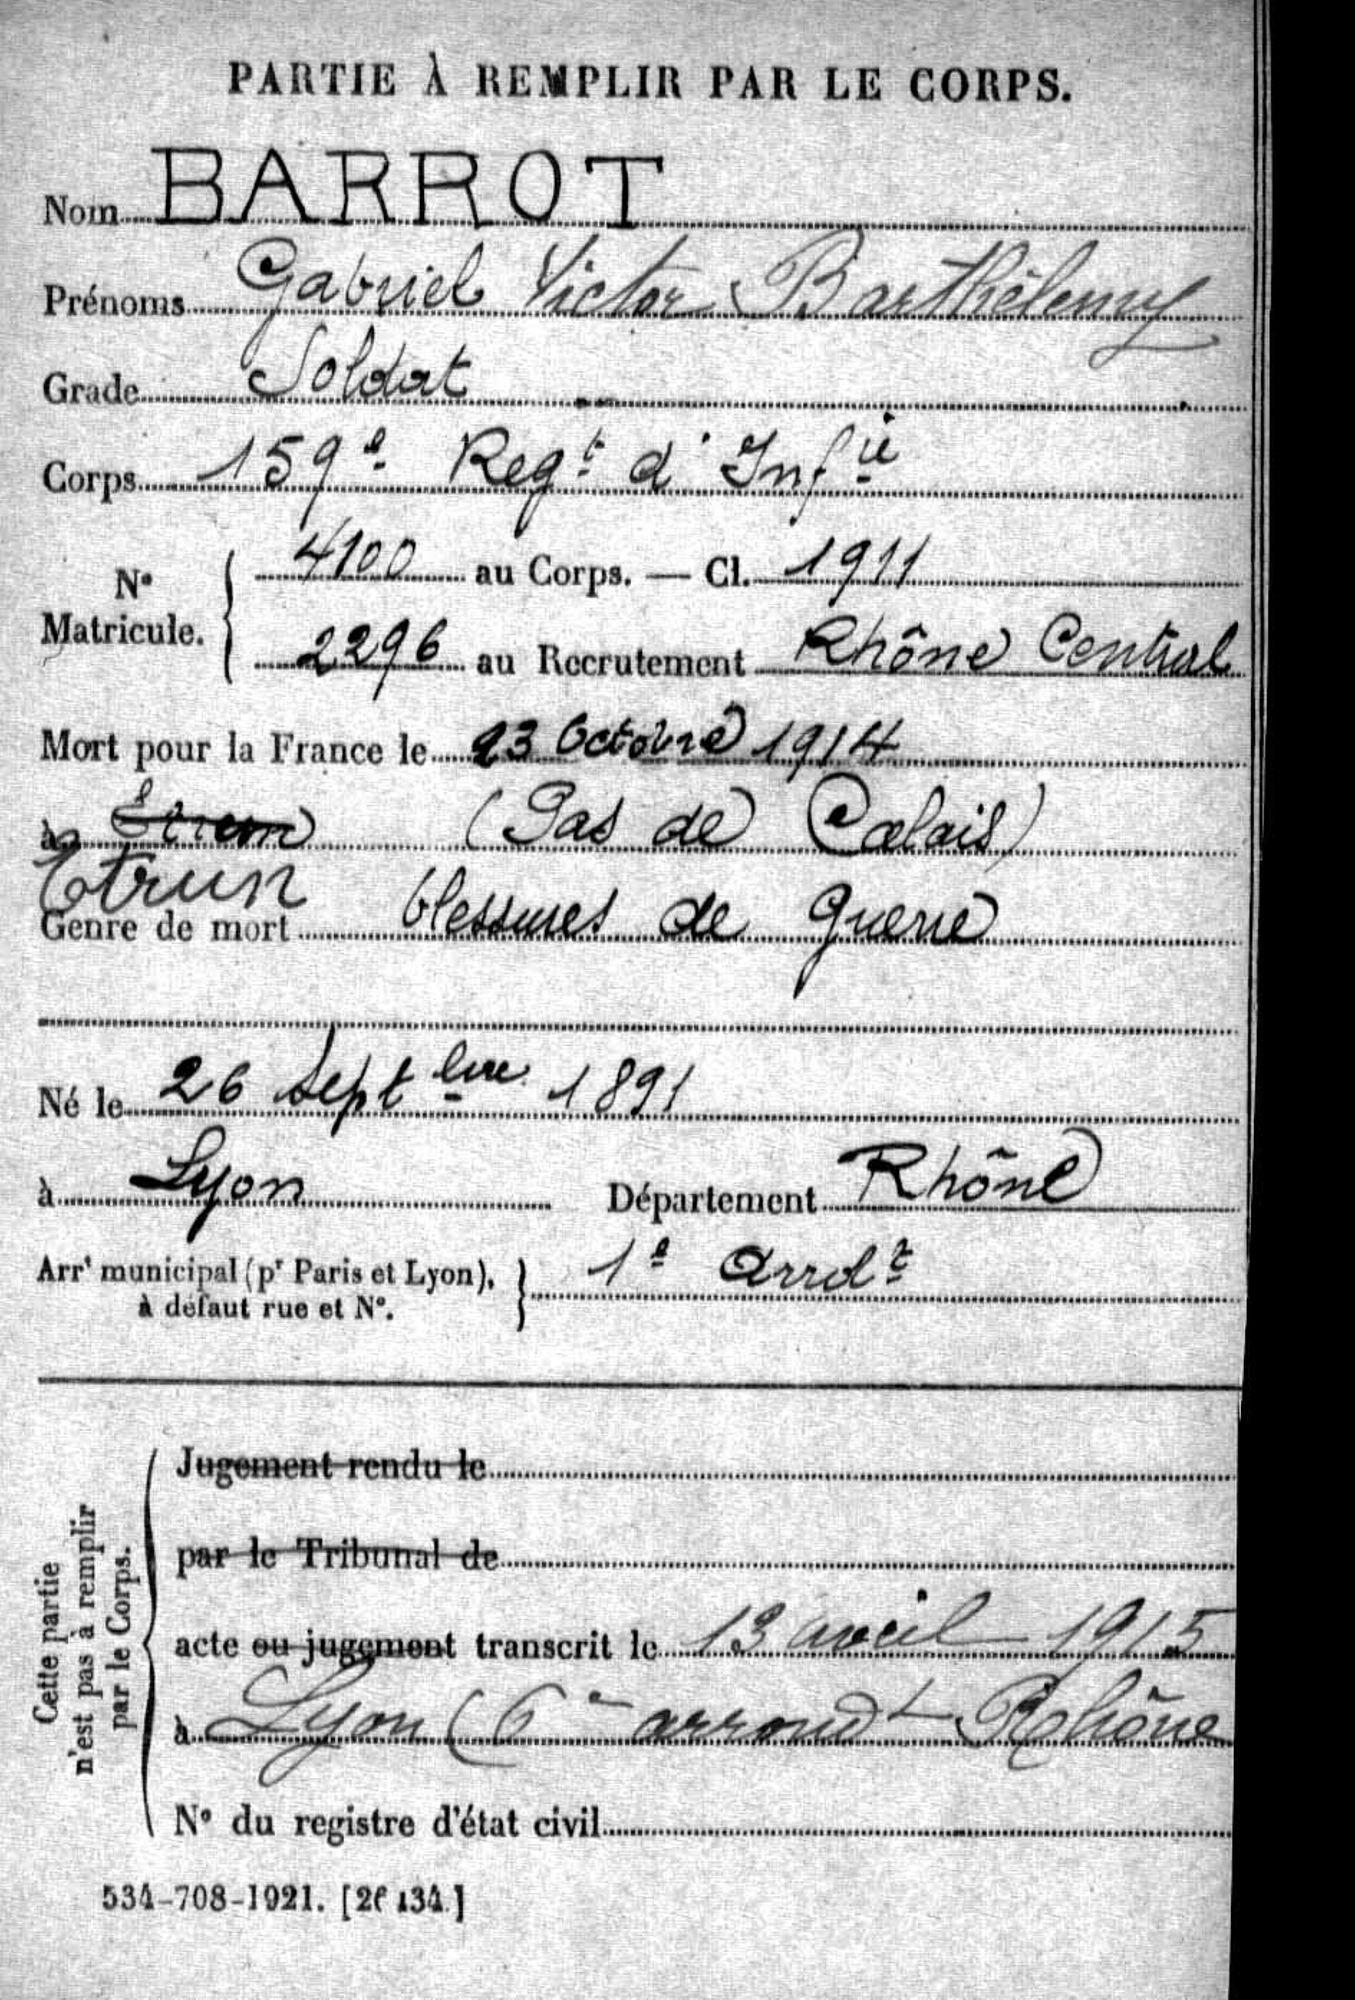 PARTIE À REMPLIR PAR LE CORPS.
Nom BARROT
Prénoms Gabriel Victor Barthélemy
Grade Soldat
Corps 159e Regt d'Infie
N° Matricule. { 4100 au Corps. — Cl. 1911
2296 au Recrutement Rhône Central
Mort pour la France le 23 Octobre 1914
à (Pas de Calais)
Etrun
Genre de mort blessures de guerre
Né le 26 Septbre 1891
à Lyon Département Rhône
Arrt municipal (pr Paris et Lyon), } 1e Arrdt
à défaut rue et N°.
Cette partie
n'est pas à remplir
par le Corps.
Jugement rendu le
par le Tribunal de
acte ou jugement transcrit le 13 avril 1915
à Lyon (6e arrondt Rhône
N° du registre d'état civil
534-708-1921. [26434.]